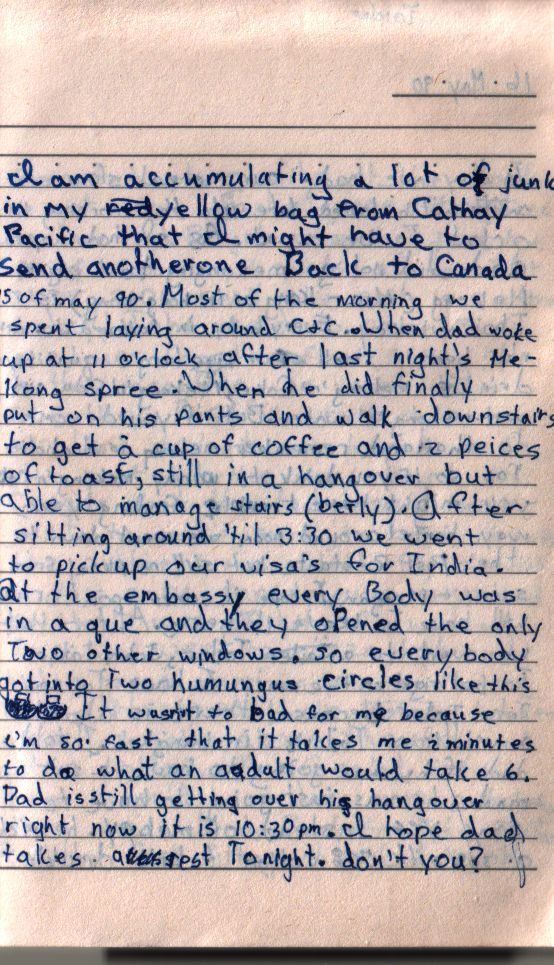 I am accumulating a lot of junk
in my yellow bag from Cathay
Pacific that I might have to
send anotherone Back to Canada
5 of may 90. Most of the morning we
spent laying around C&C. When dad woke
up at 11 o'clock after last night's Me-
Kong spree. When he did finally
put on his pants and walk downstairs
to get a cup of coffee and 2 peices
of toast, still in a hangover but
able to manage stairs (berly). After
sitting around 'til 3:30 we went
to pick up our visa's for India.
at the embassy every Body was
in a que and they opened the only
Two other windows. so every body
got into Two humungus circles like this
It wasn't to bad for me because
i'm so fast that it takes me 2 minutes
to do what an adult would take 6.
Dad is still getting over his hangover
right now it is 10:30pm. I hope dad
takes a rest Tonight. don't you?